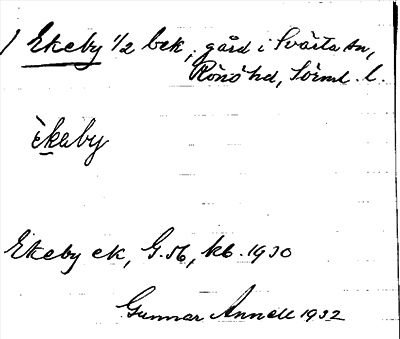 1 Ekeby 1/2 bek, gård i Svärta sn,
Rönö hd, Sörml. l.
èkaby
Ekeby ek, G. 56, kb. 1930
Gunnar Annell 1932